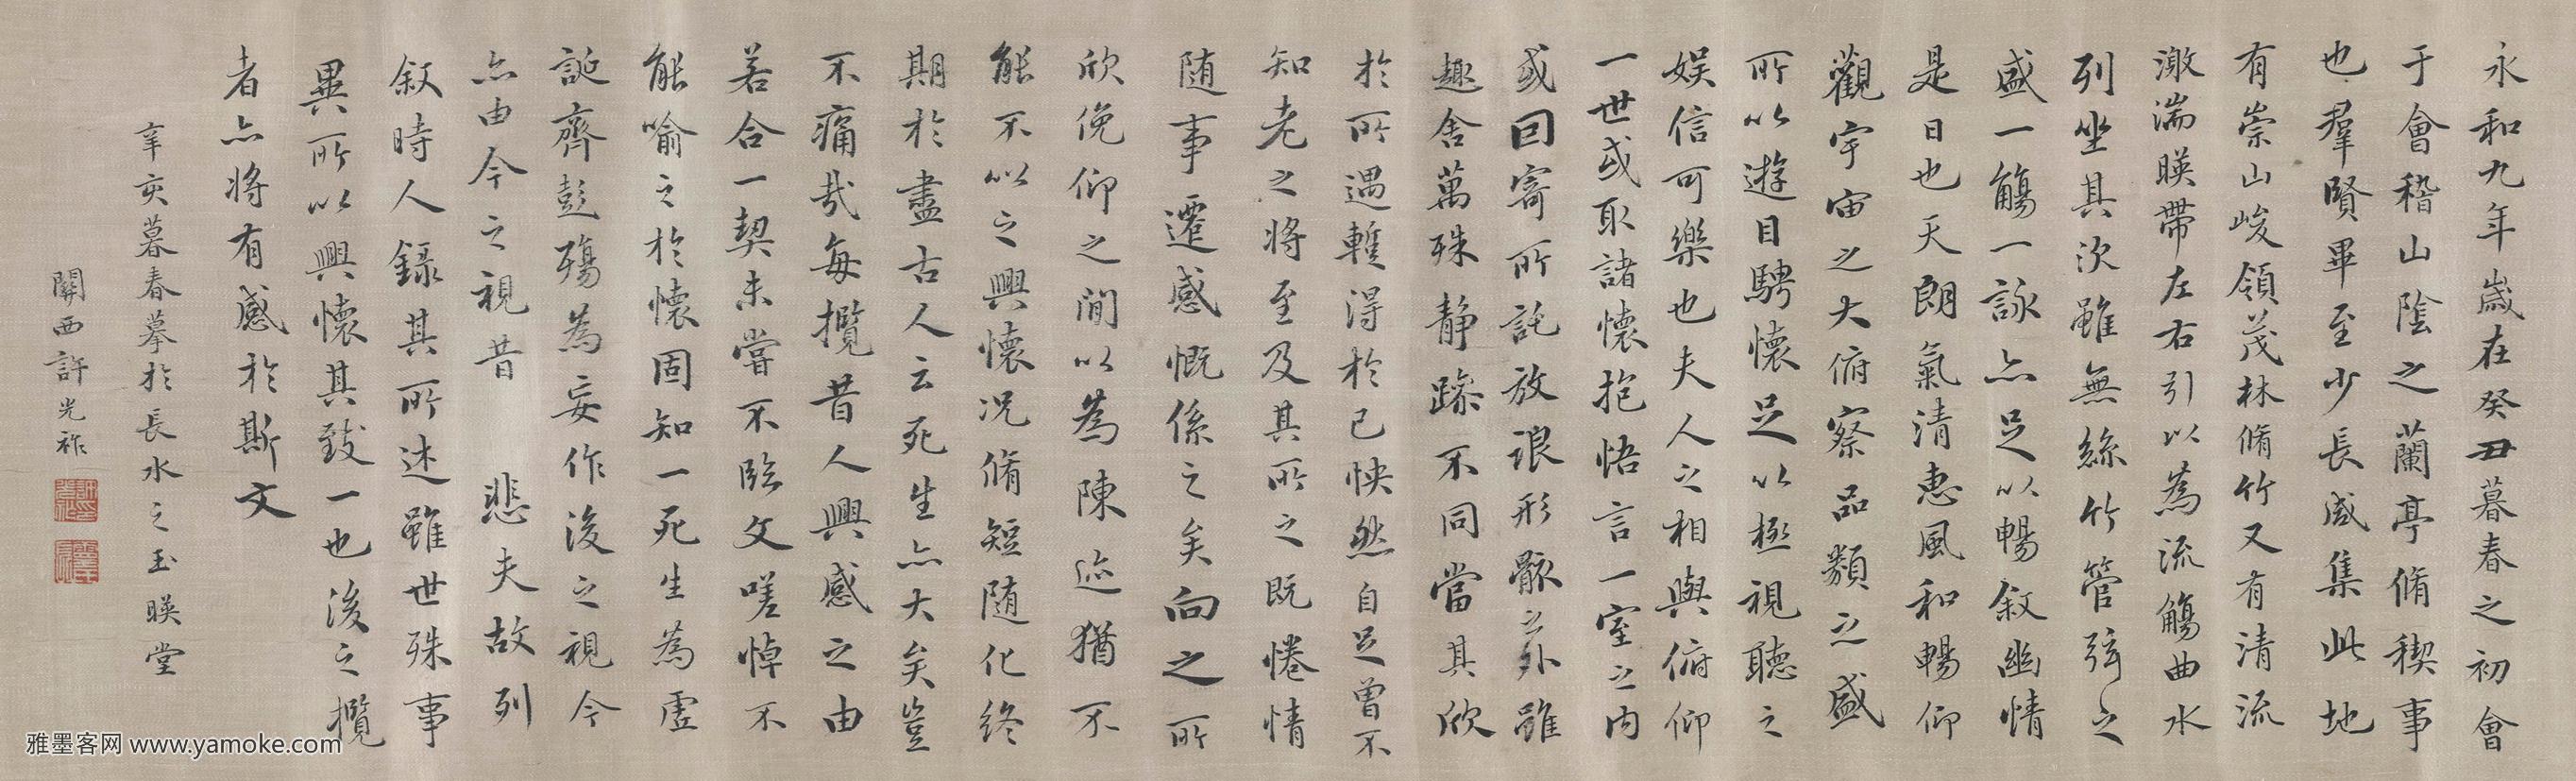 永和九年歲在癸丑暮春之初會
于會稽山陰之蘭亭脩稧事
也羣賢畢至少長咸集此地
有崇山峻領茂林脩竹又有清流
激湍暎帶左右引以為流觴曲水
列坐其次雖無絲竹管弦之
盛一觴一詠亦足以暢敘幽情
是日也天朗氣清惠風和暢仰
觀宇宙之大俯察品類之盛
所以遊目騁懷足以極視聽之
娛信可樂也夫人之相與俯仰
一世或取諸懷抱悟言一室之內
或因寄所託放浪形骸之外雖
趣舍萬殊靜躁不同當其欣
於所遇暫得於己怏然自足曾不
知老之將至及其所之既惓情
隨事遷感慨係之矣向之所
欣俛仰之間以為陳迹猶不
能不以之興懷況脩短隨化終
期於盡古人云死生亦大矣豈
不痛哉每攬昔人興感之由
若合一契未嘗不臨文嗟悼不
能喻之於懷固知一死生為虛
誕齊彭殤為妄作後之視今
亦由今之視昔 悲夫故列
敘時人錄其所述雖世殊事
異所以興懷其致一也後之攬
者亦將有感於斯文
辛亥暮春摹於長水之玉暎堂
關西許光祚
雅墨客网 www.yamoke.com